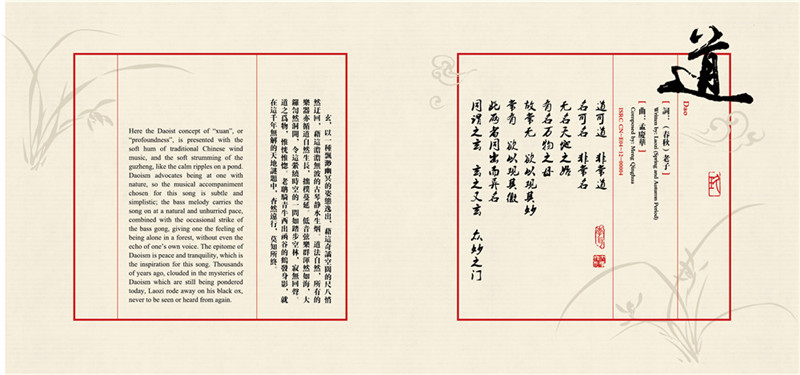 Here the Daoist concept of “xuan”, or
“profoundness”, is presented with the
soft hum of traditional Chinese wind
music, and the soft strumming of the
guzheng, like the calm ripples on a pond.
Daoism advocates being at one with
nature, so the musical accompaniment
chosen for this song is subtle and
simplistic; the bass melody carries the
song on at a natural and unhurried pace,
combined with the occasional strike of
the bass gong, giving one the feeling of
being alone in a forest, without even the
echo of one’s own voice. The epitome of
Daoism is peace and tranquility, which is
the inspiration for this song. Thousands
of years ago, clouded in the mysteries of
Daoism which are still being pondered
today, Laozi rode away on his black ox,
never to be seen or heard from again.
玄，以一種飄渺幽冥的姿態逸出，藉這奇譎空間的尺八悄
然迂回，藉這澹澹無波的古琴静水生烟。道法自然，所有的
樂器亦循道自然生長，拙樸蔓延。低音弦樂群渾然如海，大
鑼訇然洞開，令這縈繞時空的一問如踏步空林，寂無回聲。
道之爲物，惟恍惟惚。老聃騎青牛西出函谷的鶴發身影，就
在這千年無解的天地謎題中，杳然遠行，莫知所終。
道
Dao
[ 詞：（春秋）老子 ]
Written by: Laozi (Spring and Autumn Period)
[ 曲：孟慶華 ]
Composed by: Meng Qinghua
ISRC CN-E04-12-00004
道可道 非常道
名可名 非常名
无名天地之始
有名万物之母
故常无 欲以观其妙
常有 欲以观其徼
此两者同出而异名
同谓之玄 玄之又玄 众妙之门